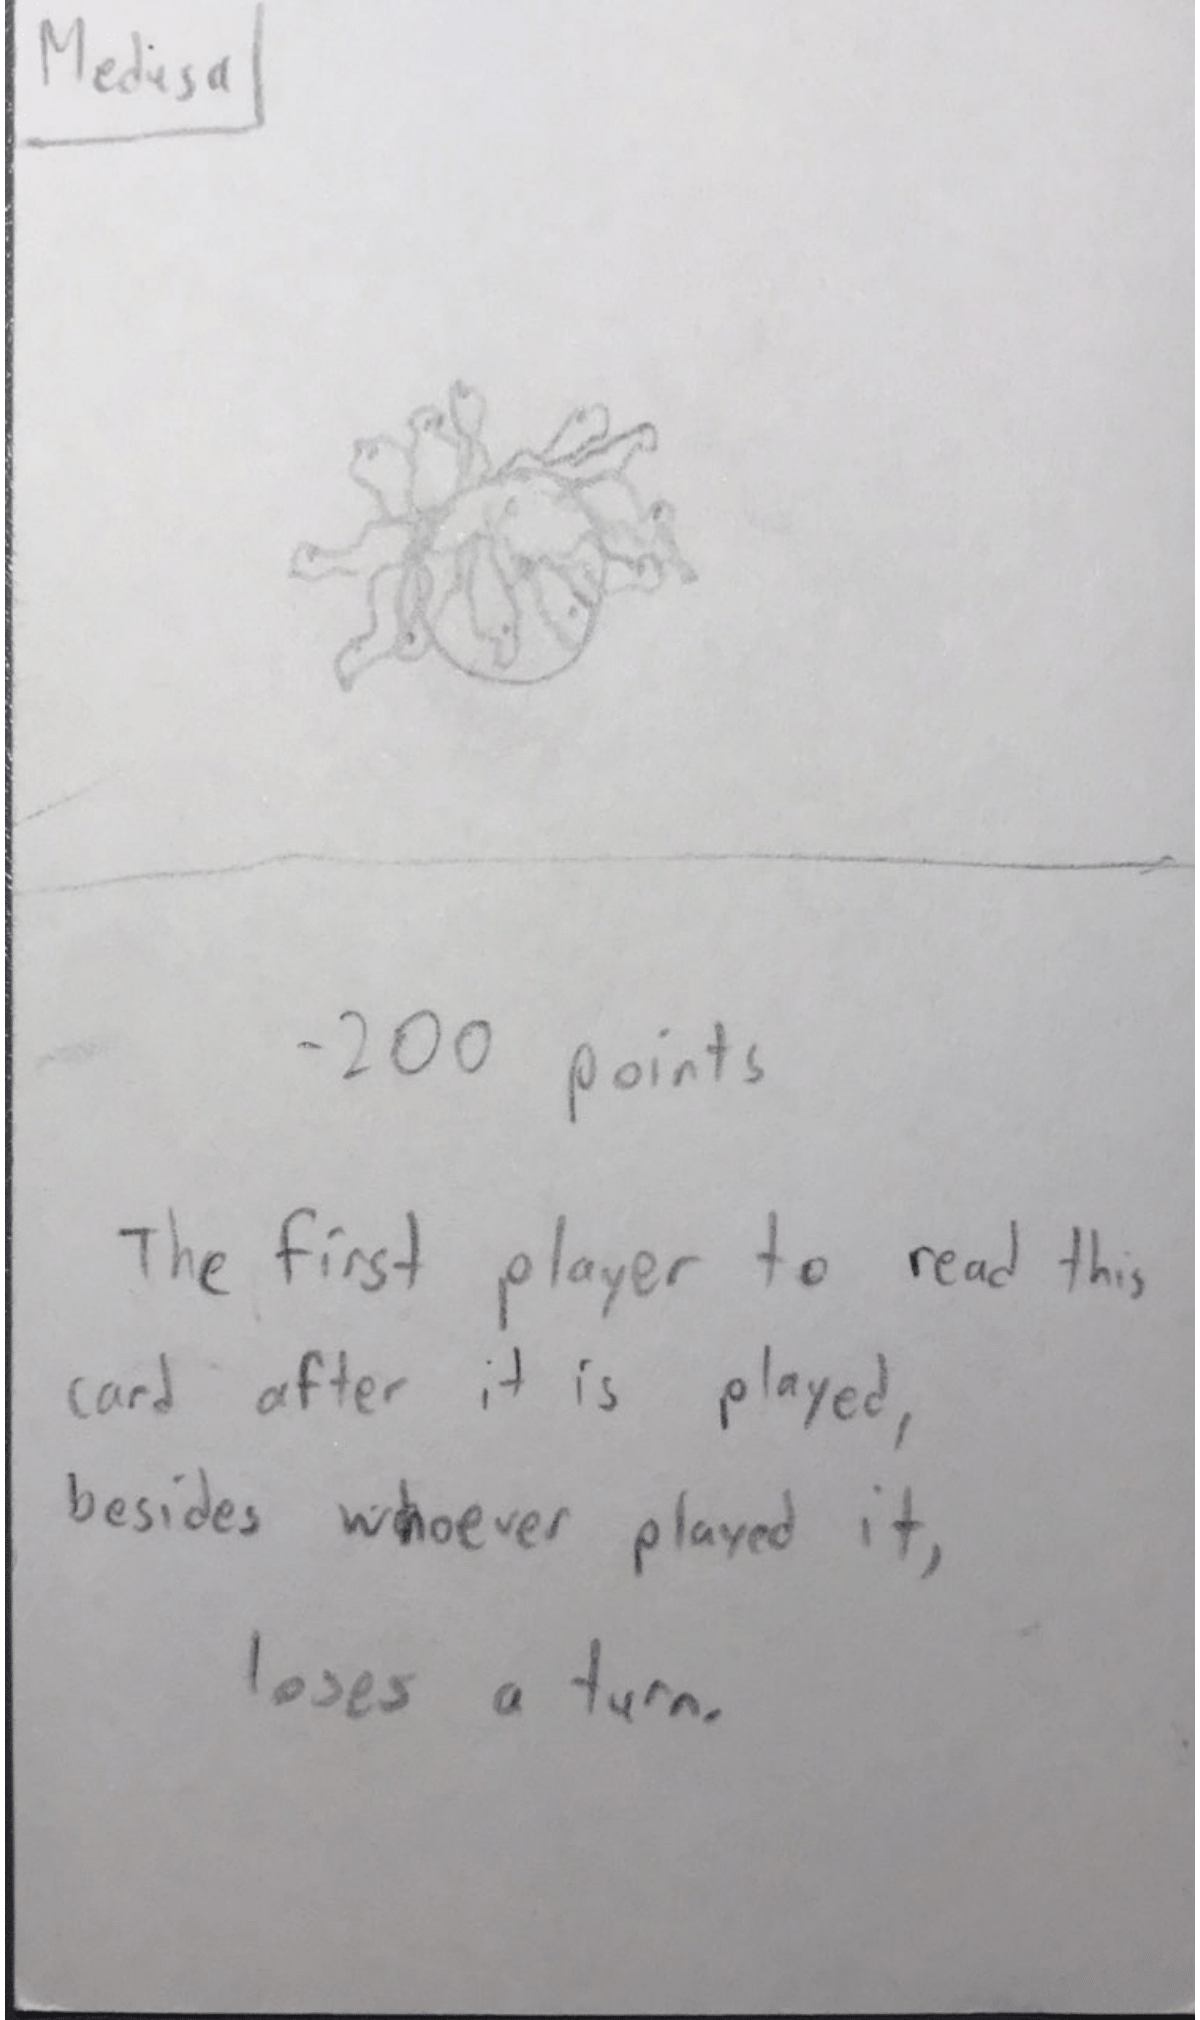 Medusa
-200 points
The first player to read this
card after it is played,
besides whoever played it,
loses a turn.